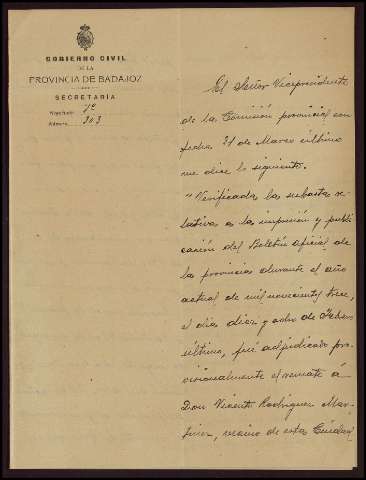 GOBIERNO CIVIL
DE LA
PROVINCIA DE BADAJOZ
SECRETARÍA
Negociado 7º
Número 303
El Señor Vicepresidente
de la Comisión provincial con
fecha 21 de Marzo último
me dice lo siguiente.
"Verificada la subasta re-
lativa a la impresión y publi
cación del Boletín oficial de
la provincia durante el año
actual de mil novecientos trece,
el dia diez y ocho de Febrero
último, fué adjudicado pro-
visionalmente el remate á
Don Vicente Rodriguez Mar-
tinez, vecino de esta Ciudad